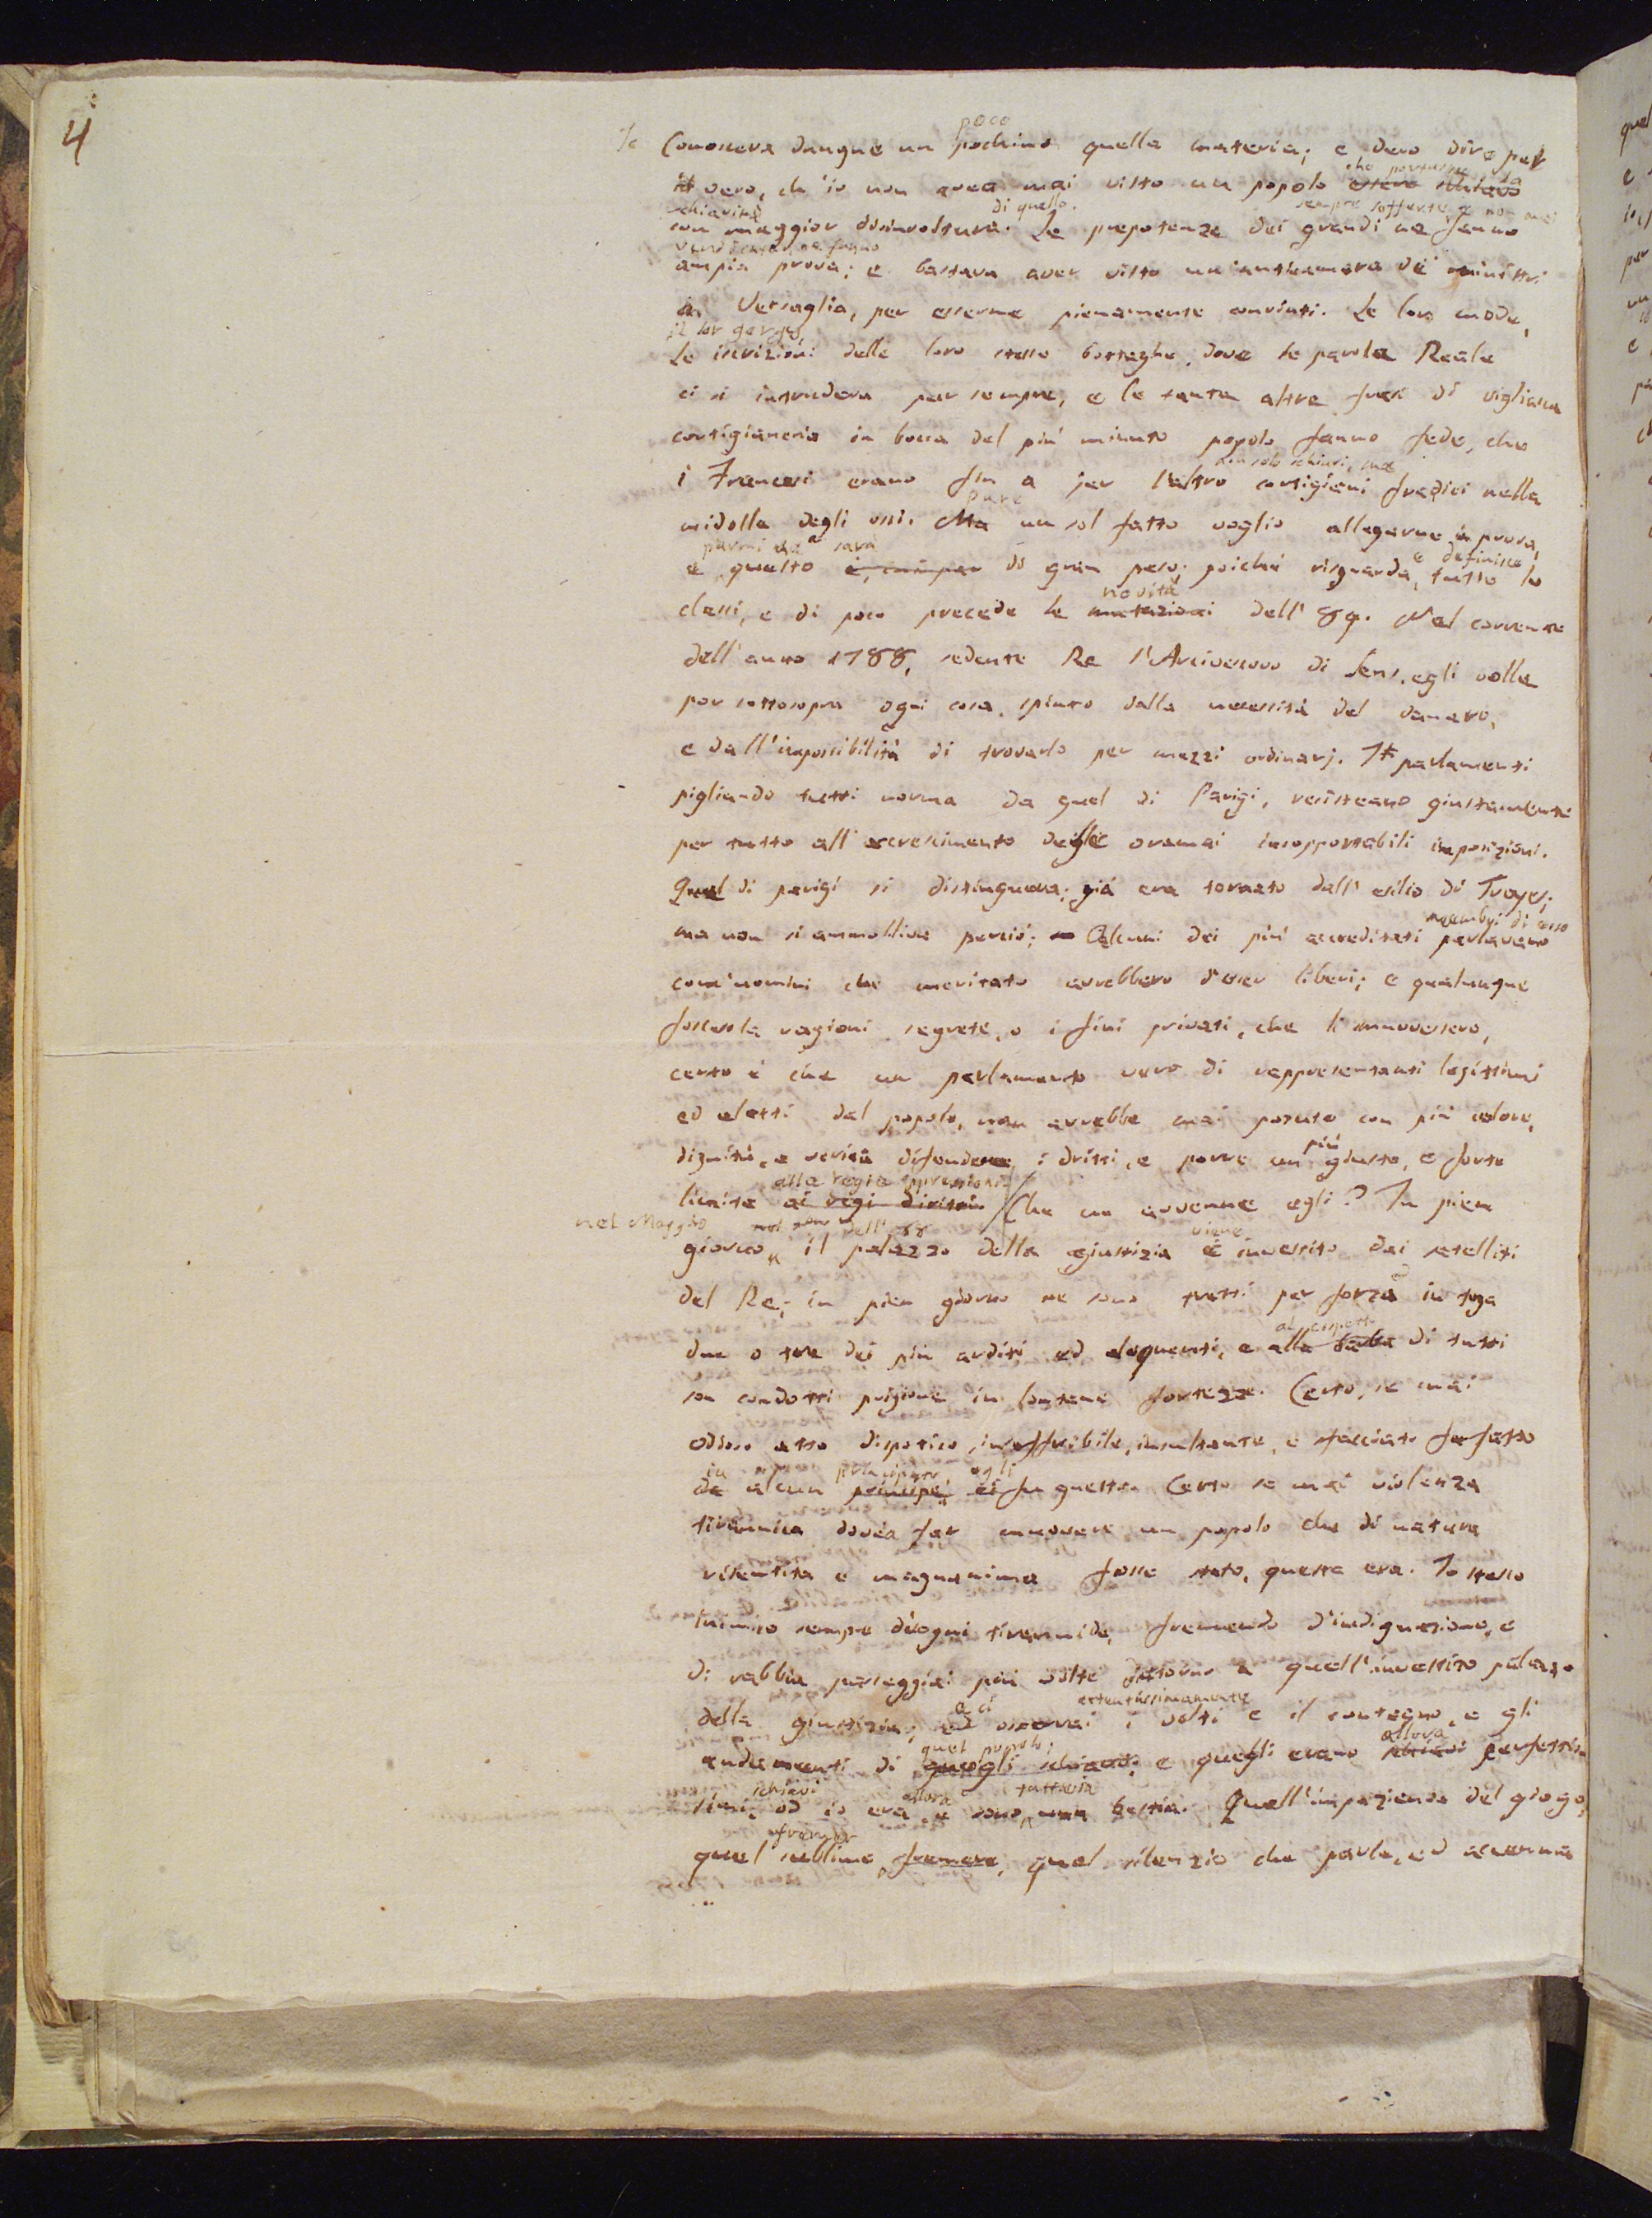 4
poco
Io Conosceva dunque un pochino quella materia; e devo dire pel
che portasse la
vero, ch'io non avea mai visto un popolo essere schiavo
schiavitù di quello. sempre sofferte, e non mai
con maggior disinvoltura. Le prepotenze dei grandi ne fanno
vendicate, ne fanno
ampia prova; e bastava aver visto un'anticamera dei ministri
a Versaglia, per esserne pienamente convinti. Le loro mode,
il lor gergo,
le iscrizioni delle loro stesse botteghe, dove la parola Reale
ci si intrudeva per sempre, e le tante altre frasi di vigliacca
cortigianeria in bocca del più minuto popolo fanno fede, che
non solo schiavi, ma
i Francesi erano fin a jer l'altro cortigiani fradici nella
Pure
midolla degli ossi. Ma un sol fatto voglio allegarne in prova,
parmi che sarà e definisce
e questo è, di gran peso; poiché risguarda tutte le
novità
classi, e di poco precede le mutazioni dell'89. Nel corrente
dell'anno 1788, sedente Re l'Arcivescovo di Sens, egli volle
por sottosopra ogni cosa, spinto dalla necessità del danaro,
e dall'impossibilità di trovarlo per mezzi ordinarj. I parlamenti
pigliando tutti norma da quel di Parigi, resisteano giustamente
per tutto all'accrescimento delle oramai insopportabili imposizioni.
Quel di parigi si distingueva; già era tornato dall'esilio di Troyes;
membri di esso
ma non si ammolliva perciò; Alcuni dei più accreditati parlavano
com'uomini che meritato avrebbero d'esser liberi; e qualunque
fosser le ragioni segrete, o i fini privati, che li muovessero,
certo è che un parlamento vero di rappresentanti legittimi
ed eletti dal popolo, non avrebbe mai potuto con più calore,
più
dignità, e verità difendere i dritti, e porre un giusto, e forte
alla regia oppressione
limite ai regj diritti. Che ne avvenne egli? In pien
nel Maggio dell'88 viene
giorno, il palazzo della giustizia è investito dai satelliti
del Re; in pien giorno ne sono tratti per forza ed in toga
al cospetto
due o tre dei più arditi ed eloquenti, e alla di tutti
son condotti prigione in lontane fortezze. Certo, se mai
odioso atto dispotico, insoffribile, insultante, e sfacciato fu fatto
in principato, egli
da alcun principe, ei fu questo. Certo se mai violenza
tirannica dovea far muovere un popolo che di natura
risentita e magnanima fosse stato, questa era. Io stesso
inimico sempre d'ogni tirannide, fremendo d'indignazione, e
di rabbia passeggiai più volte dattorno a quell'investito palazzo
ed attentissimamente
della giustizia; ed osservai i volti e il contegno, e gli
quel popolo; allora
andamenti di quegli schiavi; e quegli erano schiavi perfettis
schiavi allora tuttavia
simi, ed io era, e sono, una bestia. Quell'impazienza del giogo,
quel sublime fremere, quel silenzio che parla, ed accenna